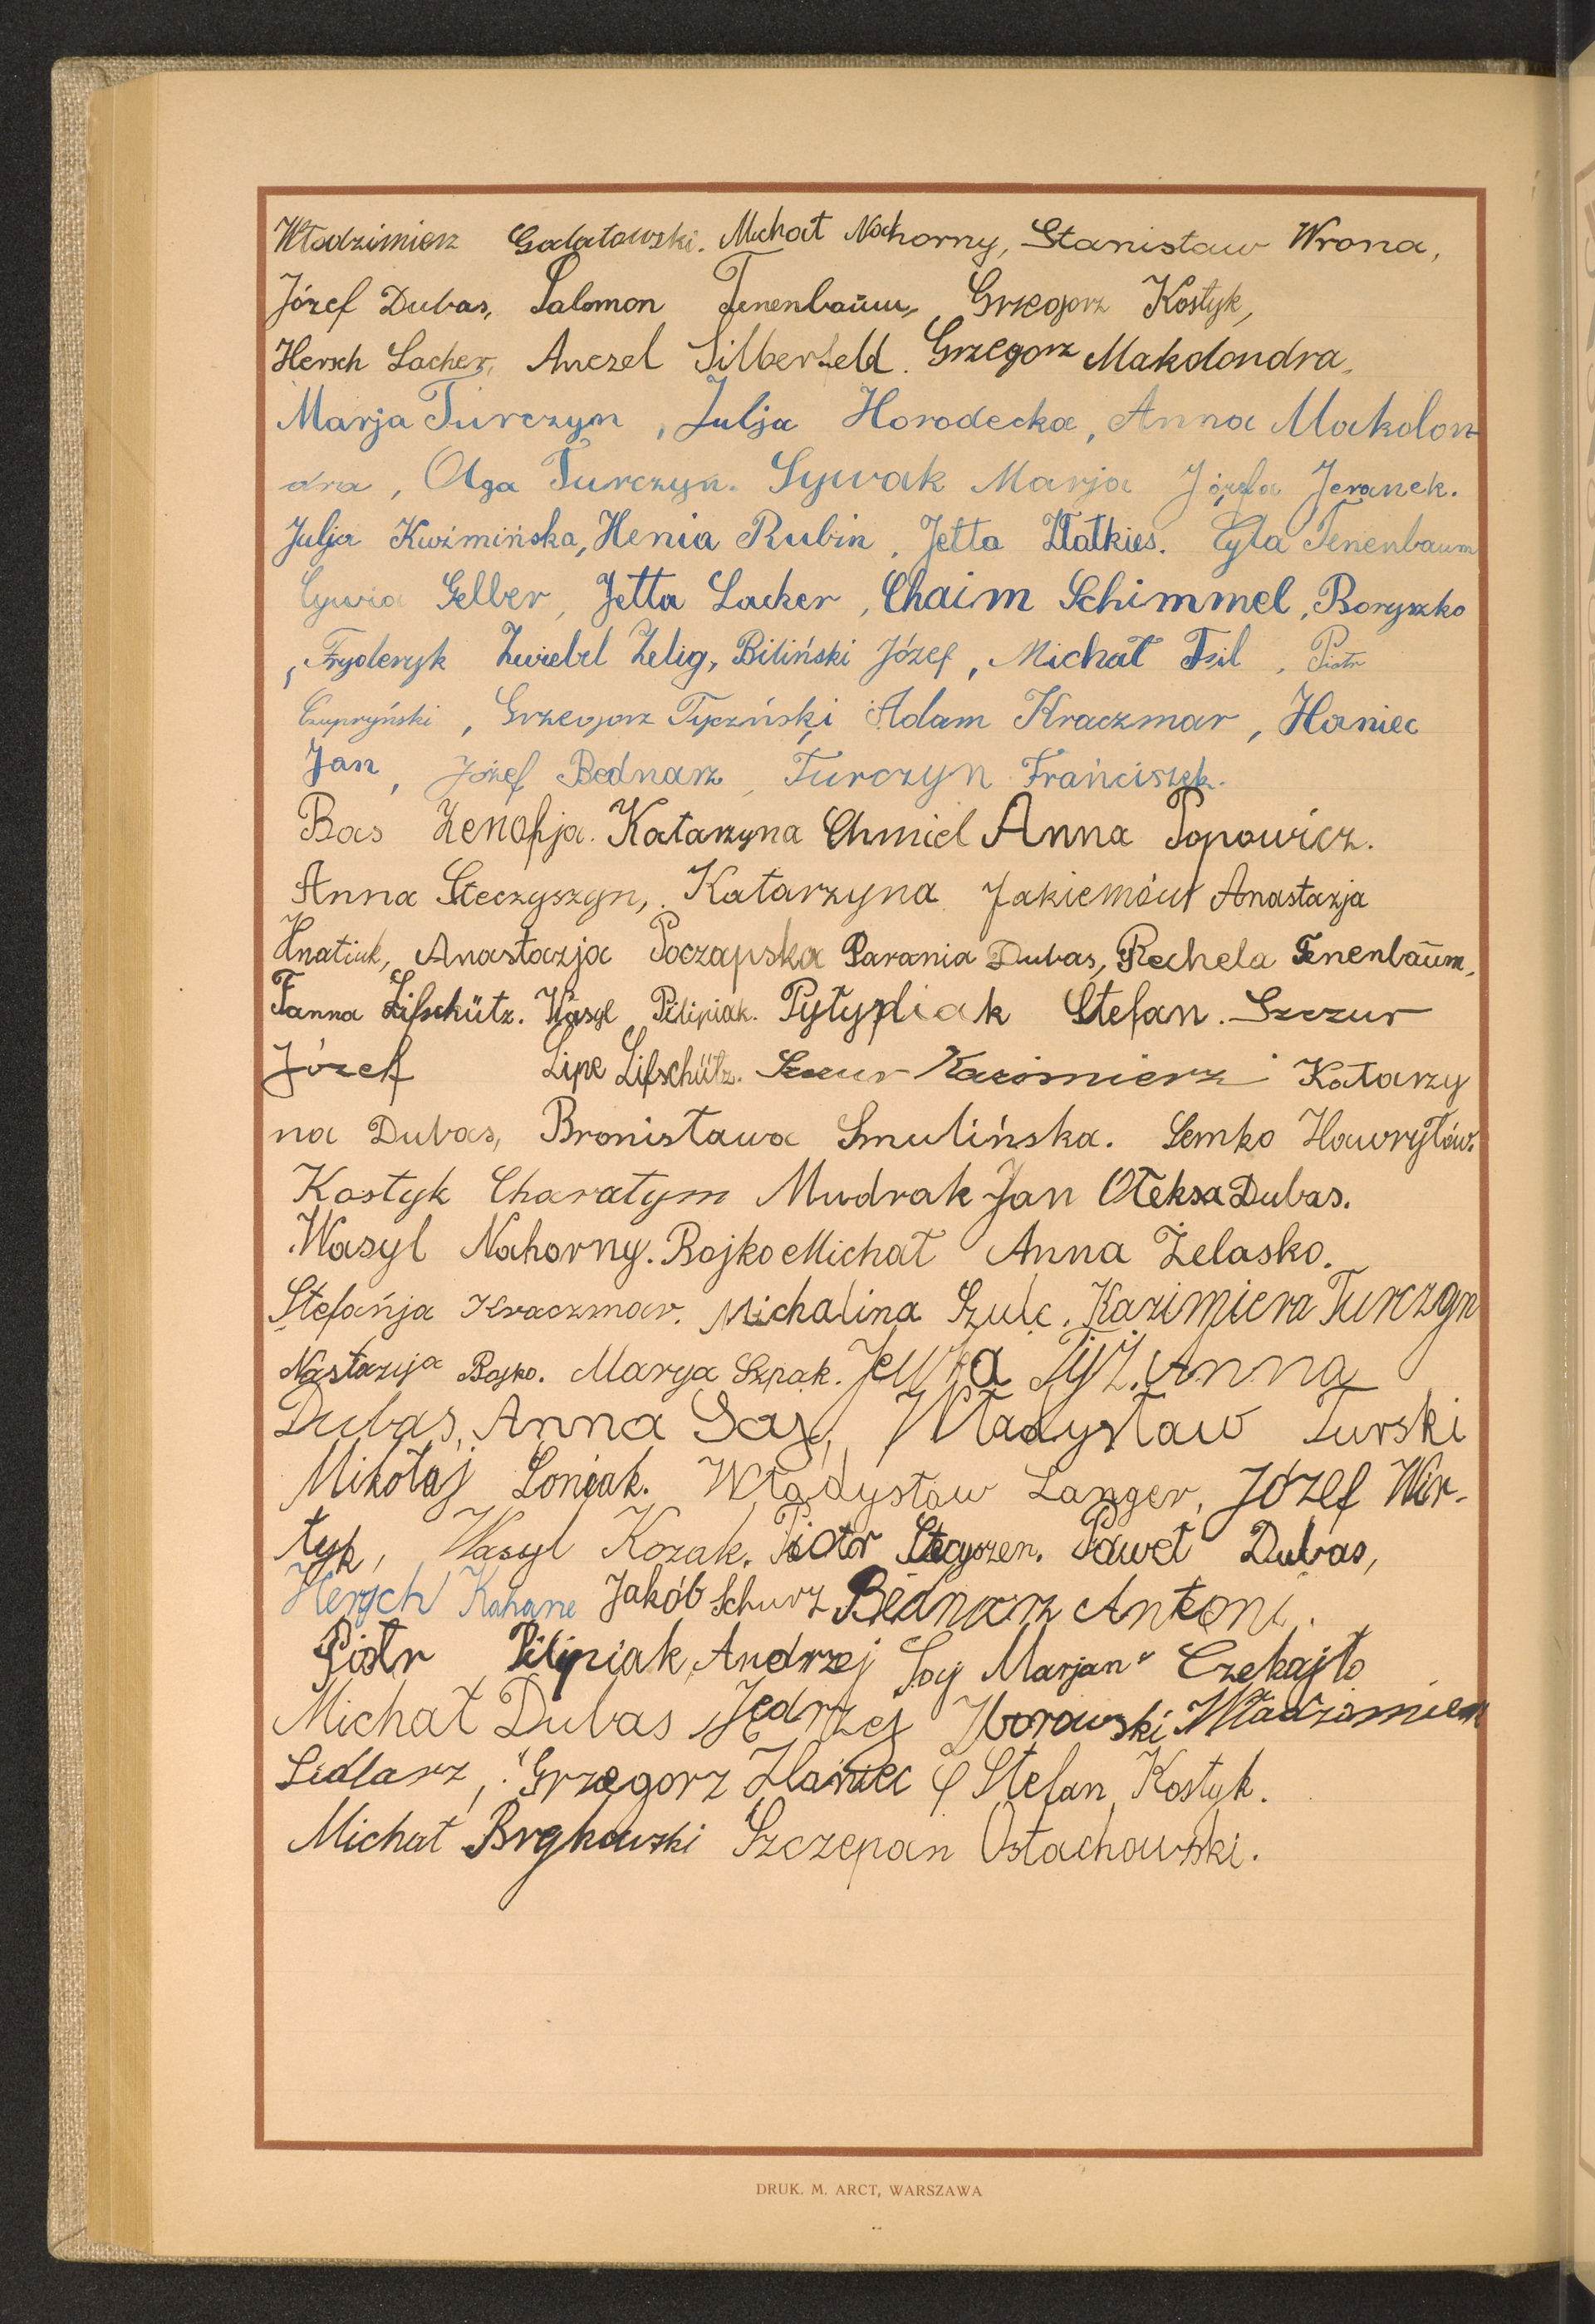 Włodzimierz Gadatowski. Michał Nahorny, Stanisław Wrona,
Józef Dubas, Salomon Tenenbaum, Grzegorz Kostyk,
Hersch Lacher, Anczel Silberfeld. Grzegorz Makolondra,
Marja Turczyn, Julja Horodecka, Anna Makolon-
dra, Olga Turczyn. Sywak Marja Józefa Jeranek.
Julja Kuźmińska, Henia Rubin, Jetta Złatkies. Cyla Tenenbaum
Cywia Gelber, Jetta Lacker, Chaim Schimmel, Boryszko
, Fryderyk Zwiebel Zelig, Biliński Józef, Michał Tsil, Piotr
Czupryński, Grzegorz Tyczński, Adam Kraczmar, Haniec
Jan, Józef Bednarz, Turczyn Franciszek.
Bas Zenofja. Katarzyna Chmiel Anna Popowicz.
Anna Steczyszyn, Katarzyna Jakiemów Anastazja
Hnatiuk, Anastazja Poczapska Parania Dubas, Rechela Tenenbaum,
Fanna Lifschütz. Wasyl Pilipiak. Pyłypiak Stefan. Szczur
Józef Lipe Lifschütz. Szczur Kazimierz Katarzy
na Dubas, Bronisława Smulińska. Semko Hawryłów.
Kostyk Charatym Mudrak Jan Ołeksa Dubas.
Wasyl Nahorny. Bojko Michał Anna Żelasko.
Stefanja Kraczmar. Michalina Szulc, Kazimiera Turczyn
Nastazija Bojko. Marya Szpak. Jewka Tyż. Anna
Dubas, Anna Saj, Władysław Turski
Mikołaj Soniak. Władysław Langer, Józef Wir-
tyk, Wasyl Kozak. Piotr Stecyszen. Paweł Dubas,
Hersch Kahane Jakób Schurz Bednarz Antoni.
Piotr Pilipiak, Andrzej Soy Marjan Czekajło
Michał Dubas Jędrzej Zborowski Włodzimierz
Sidlarz, Grzegorz Haniec Stefan Kostyk.
Michał Brykowski Szczepan Ostachowski.
DRUK. M. ARCT, WARSZAWA